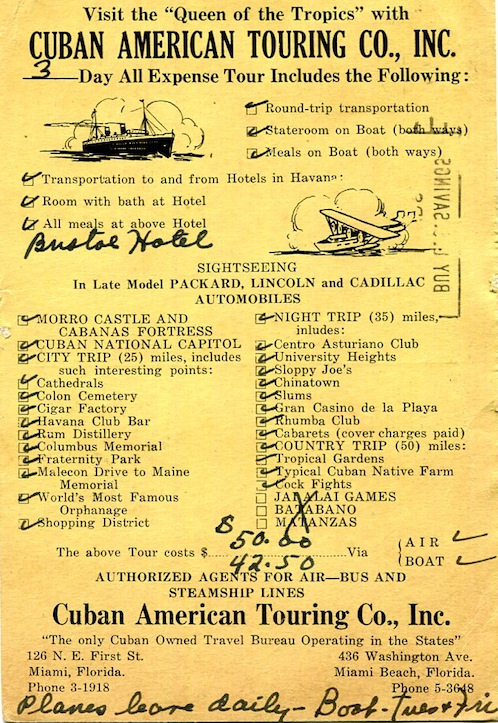 Visit the "Queen of the Tropics" with
CUBAN AMERICAN TOURING CO., INC.
3 —Day All Expense Tour Includes the Following:
Round-trip transportation
Stateroom on Boat (both ways)
Meals on Boat (both ways)
Transportation to and from Hotels in Havana:
Room with bath at Hotel
All meals at above Hotel
Bristol Hotel
BUY U.S. SAVINGS
SIGHTSEEING
In Late Model PACKARD, LINCOLN and CADILLAC
AUTOMOBILES
MORRO CASTLE AND
CABANAS FORTRESS
CUBAN NATIONAL CAPITOL
CITY TRIP (25) miles, includes
such interesting points:
Cathedrals
Colon Cemetery
Cigar Factory
Havana Club Bar
Rum Distillery
Columbus Memorial
Fraternity Park
Malecon Drive to Maine
Memorial
World's Most Famous
Orphanage
Shopping District
NIGHT TRIP (35) miles,
inludes:
Centro Asturiano Club
University Heights
Sloppy Joe's
Chinatown
Slums
Gran Casino de la Playa
Rhumba Club
Cabarets (cover charges paid)
COUNTRY TRIP (50) miles:
Tropical Gardens
Typical Cuban Native Farm
Cock Fights
JAI ALAI GAMES
BATABANO
MATANZAS
$ 50.00
The above Tour costs $ Via
AIR
42.50
BOAT
AUTHORIZED AGENTS FOR AIR—BUS AND
STEAMSHIP LINES
Cuban American Touring Co., Inc.
"The only Cuban Owned Travel Bureau Operating in the States"
126 N. E. First St.
Miami, Florida.
Phone 3-1918
436 Washington Ave.
Miami Beach, Florida.
Phone 5-3648
Planes leave daily - Boat - Tues & Fri